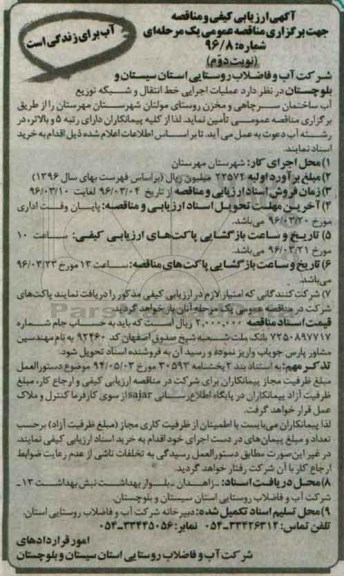 آگهی ارزیابی کیفی و مناقصه
جهت برگزاری مناقصه عمومی یک مرحله‌ای
شماره: ۹۶/۸
(نوبت دوم)
آب برای زندگی است
شرکت آب و فاضلاب روستایی استان سیستان و
بلوچستان در نظر دارد عملیات اجرایی خط انتقال و شبکه توزیع
آب ساختمان سرچاهی و مخزن روستای مولتان شهرستان مهرستان را از طریق
برگزاری مناقصه عمومی تأمین نماید. لذا از کلیه پیمانکاران دارای رتبه ۵ و بالاتر، در
رشته آب دعوت به عمل می آید. تا بر اساس اطلاعات اعلام شده ذیل اقدام به خرید
اسناد نمایند.
۱) محل اجرای کار: شهرستان مهرستان
۲) مبلغ برآورد اولیه ۲۲۵۷۲ میلیون ریال (براساس فهرست بهای سال ۱۳۹۶)
۳) زمان فروش اسناد ارزیابی و مناقصه از تاریخ ۹۶/۰۳/۰۴ لغایت ۹۶/۰۳/۱۰
۴) آخرین مهلت تحویل اسناد ارزیابی و مناقصه: پایان وقت اداری
مورخ ۹۶/۰۳/۲۰ می‌باشد.
۵) تاریخ و ساعت بازگشایی پاکت‌های ارزیابی کیفی: ساعت ۱۰
مورخ ۹۶/۰۳/۲۱ می‌باشد.
۶) تاریخ و ساعت بازگشایی پاکت های مناقصه: ساعت ۱۳ مورخ ۹۶/۰۳/۲۳
می‌باشد.
۷) شرکت کنندگانی که امتیاز لازم در ارزیابی کیفی مذکور را دریافت نمایند پاکت‌های
شرکت در مناقصه عمومی یک مرحله آنان باز خواهد گردید.
قیمت اسناد مناقصه ۲,۰۰۰,۰۰۰ ریال است که باید به حساب جام شماره
۷۲۵۰۸۹۷۷۱۷ بانک ملت شعبه شیخ صدوق اصفهان کد ۹۲۴۶۰ به نام مهندسین
مشاور پارس جویاب واریز نموده و رسید آن به فروشنده اسناد تحویل شود.
تذکر مهم: به استناد بند ۲ بخشنامه ۳۰۵۹۳ مورخ ۹۴/۰۵/۰۲ موضوع دستورالعمل
مبلغ ظرفیت مجاز پیمانکاران برای شرکت در مناقصه ارزیابی کیفی و ارجاع کار، مبلغ
ظرفیت آزاد پیمانکاران در پایگاه اطلاع رسانی sajar از سوی کارفرما کنترل و ملاک
عمل قرار خواهد گرفت.
لذا پیمانکاران می‌بایست با اطمینان از ظرفیت کاری مجاز (مبلغ ظرفیت آزاد) برحسب
تعداد و مبلغ پیمان‌های در دست اجرای خود اقدام به خرید اسناد ارزیابی کیفی نمایند.
در غیر این صورت مطابق دستورالعمل رسیدگی به تخلفات ناشی از عدم رعایت ضوابط
ارجاع کار با آن شرکت رفتار خواهد گردید.
۸) محل دریافت اسناد: زاهدان - بلوار بهداشت نبش بهداشت ۱۳ -
شرکت آب و فاضلاب روستایی استان سیستان و بلوچستان.
۹) محل تسلیم اسناد تکمیل شده: دبیرخانه شرکت آب و فاضلاب روستایی استان.
تلفن تماس: ۳۳۴۲۶۳۱۲-۰۵۴ نمابر: ۳۳۴۴۵۰۵۶-۰۵۴
امور قراردادهای
شرکت آب و فاضلاب روستایی استان سیستان و بلوچستان